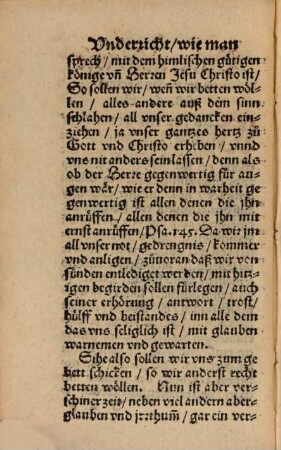 Vnderricht / wie man
sprech / mit dem himlischen gütigen
könige vñ Herren Jesu Christo ist /
So sollen wir / weñ wir betten wöl-
len / alles andere auß dem sinn
schlahen / all vnser gedancken ein-
ziehen / ja vnser gantzes hertz zů
Gott vnd Christo erheben / vnnd
vns nit anders sein lassen / denn als
ob der Herre gegenwertig für au-
gen wär / wie er denn in warheit ge
genwertig ist allen denen die jhn
anrüffen / allen denen die jhn mit
ernst anrüffen / Psa. 145. Da wir jm
all vnser not / gedrengnis / kommer
vnd anligen / züuoran daß wir von
sünden entlediget werden / mit hitzi-
gen begirden sollen fürlegen / auch
seiner erhörung / antwort / trost /
hülff vnd beistandes / inn alle dem
das vns seliglich ist / mit glauben
warnemen vnd gewarten.
Sihe also sollen wir vns zum ge
bett schicken / so wir anderst recht
betten wöllen. Nun ist aber ver-
schiner zeit / neben viel andern aber-
glauben vnd jrrthum̃ / gar ein ver-